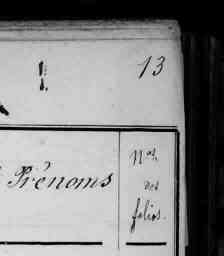 13
Prénoms
Nos
des
folios.